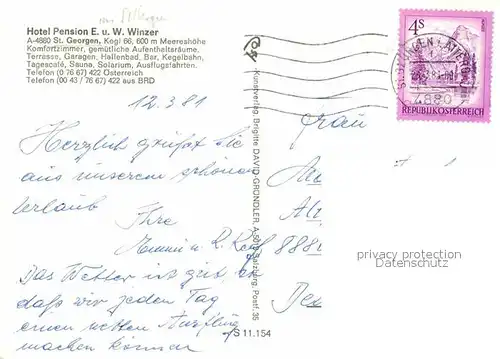 Hotel Pension E. u. W. Winzer
A-4880 St. Georgen, Kogl 66, 600 m Meereshöhe
Komfortzimmer, gemütliche Aufenthaltsräume,
Terrasse, Garagen, Hallenbad, Bar, Kegelbahn,
Tagescafé, Sauna, Solarium, Ausflugsfahrten.
Telefon (0 76 67) 422 Österreich
Telefon (00 43 / 76 67) 422 aus BRD
12.3.81
Herzlich grüßt Sie
aus unserem schönen
Urlaub
Ihre
u. R.
Das Wetter ist gut, so
daß wir jeden Tag
einen netten Ausflug
machen können
Kunstverlag Brigitte DAVID-GRÜNDLER, A-5013 Salzburg, Postf. 35
S 11.154
4S
REPUBLIK ÖSTERREICH
4880
Frau
888
privacy protection
Datenschutz